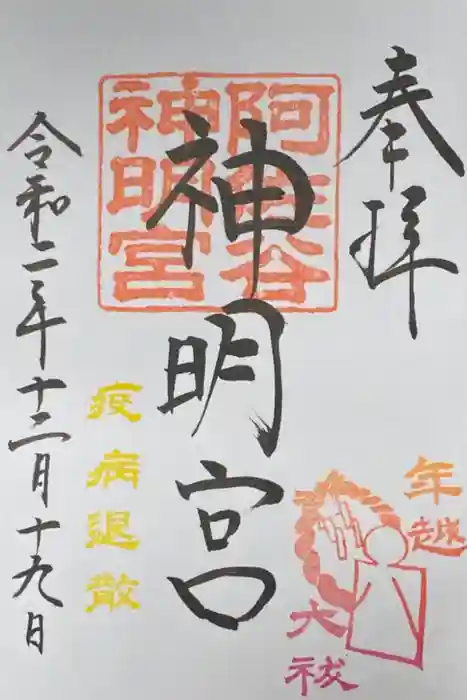 奉拝
年越
大祓
阿佐谷
神明宮
神明宮
疫病退散
令和二年十二月十九日